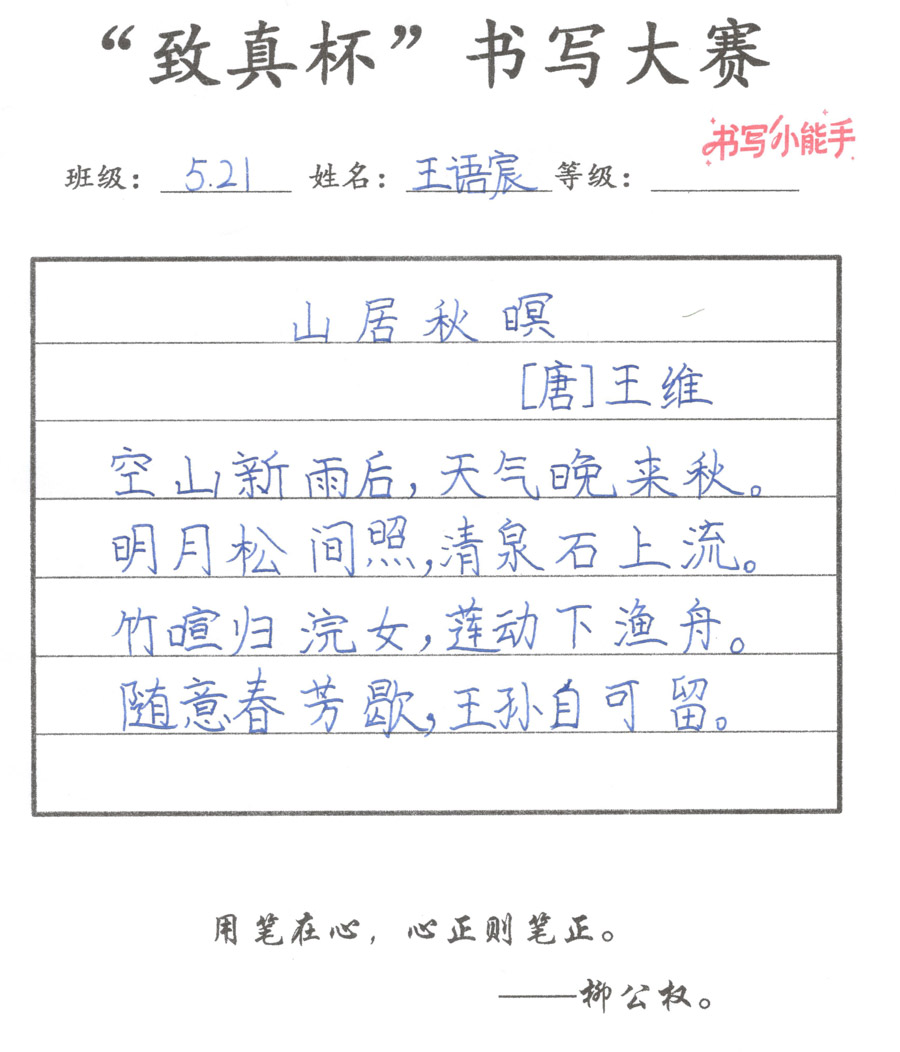 “致真杯”书写大赛
书写小能手
班级：5.21 姓名：王语宸 等级：
山居秋暝
[唐]王维
空山新雨后,天气晚来秋。
明月松间照,清泉石上流。
竹喧归浣女,莲动下渔舟。
随意春芳歇,王孙自可留。
用笔在心，心正则笔正。
——柳公权。